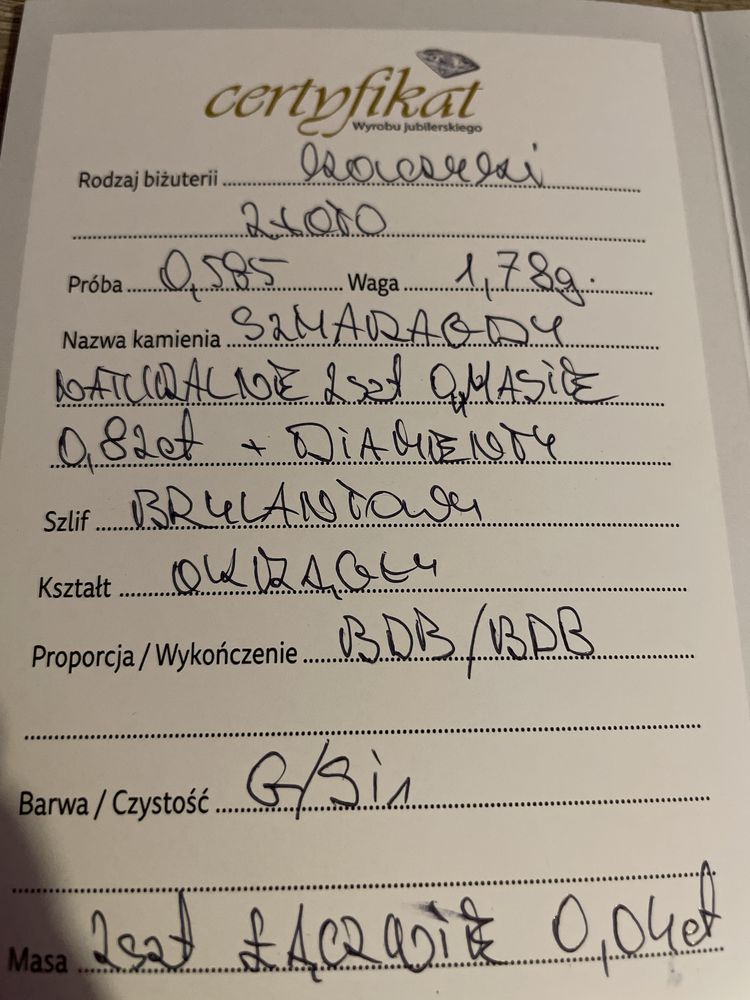 certyfikat
Wyrobu jubilerskiego
Rodzaj biżuterii Kolczyki
Złoto
Próba 0,585 Waga 1,78g.
Nazwa kamienia SZMARAGDY
NATURALNE 2szt O MASIE
0,82ct + DiAMENTY
Szlif BRYLANTOWY
Kształt OKRĄGŁY
Proporcja / Wykończenie BDB/BDB
Barwa / Czystość G/Si1
Masa 2szt ŁĄCZNiE 0,04ct